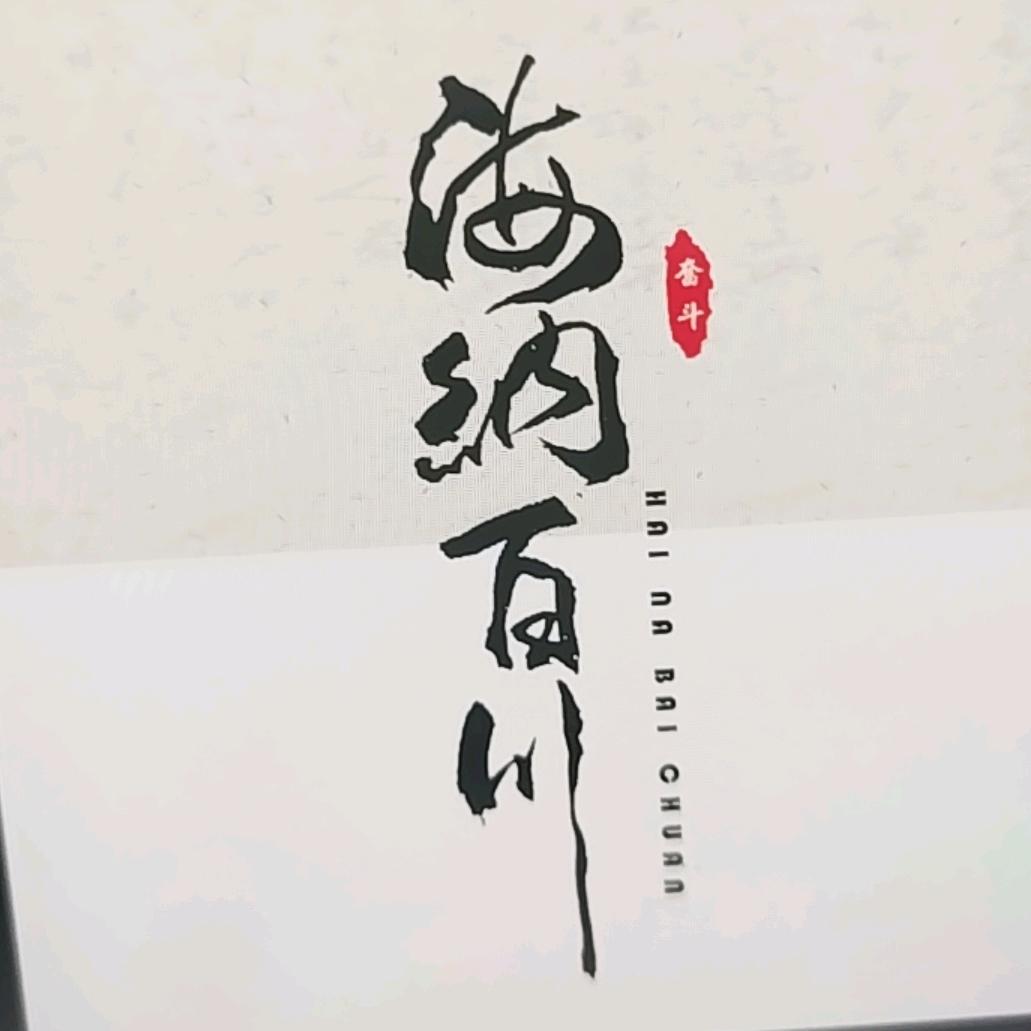 海纳百川
奋斗
HAI NA BAI CHUAN